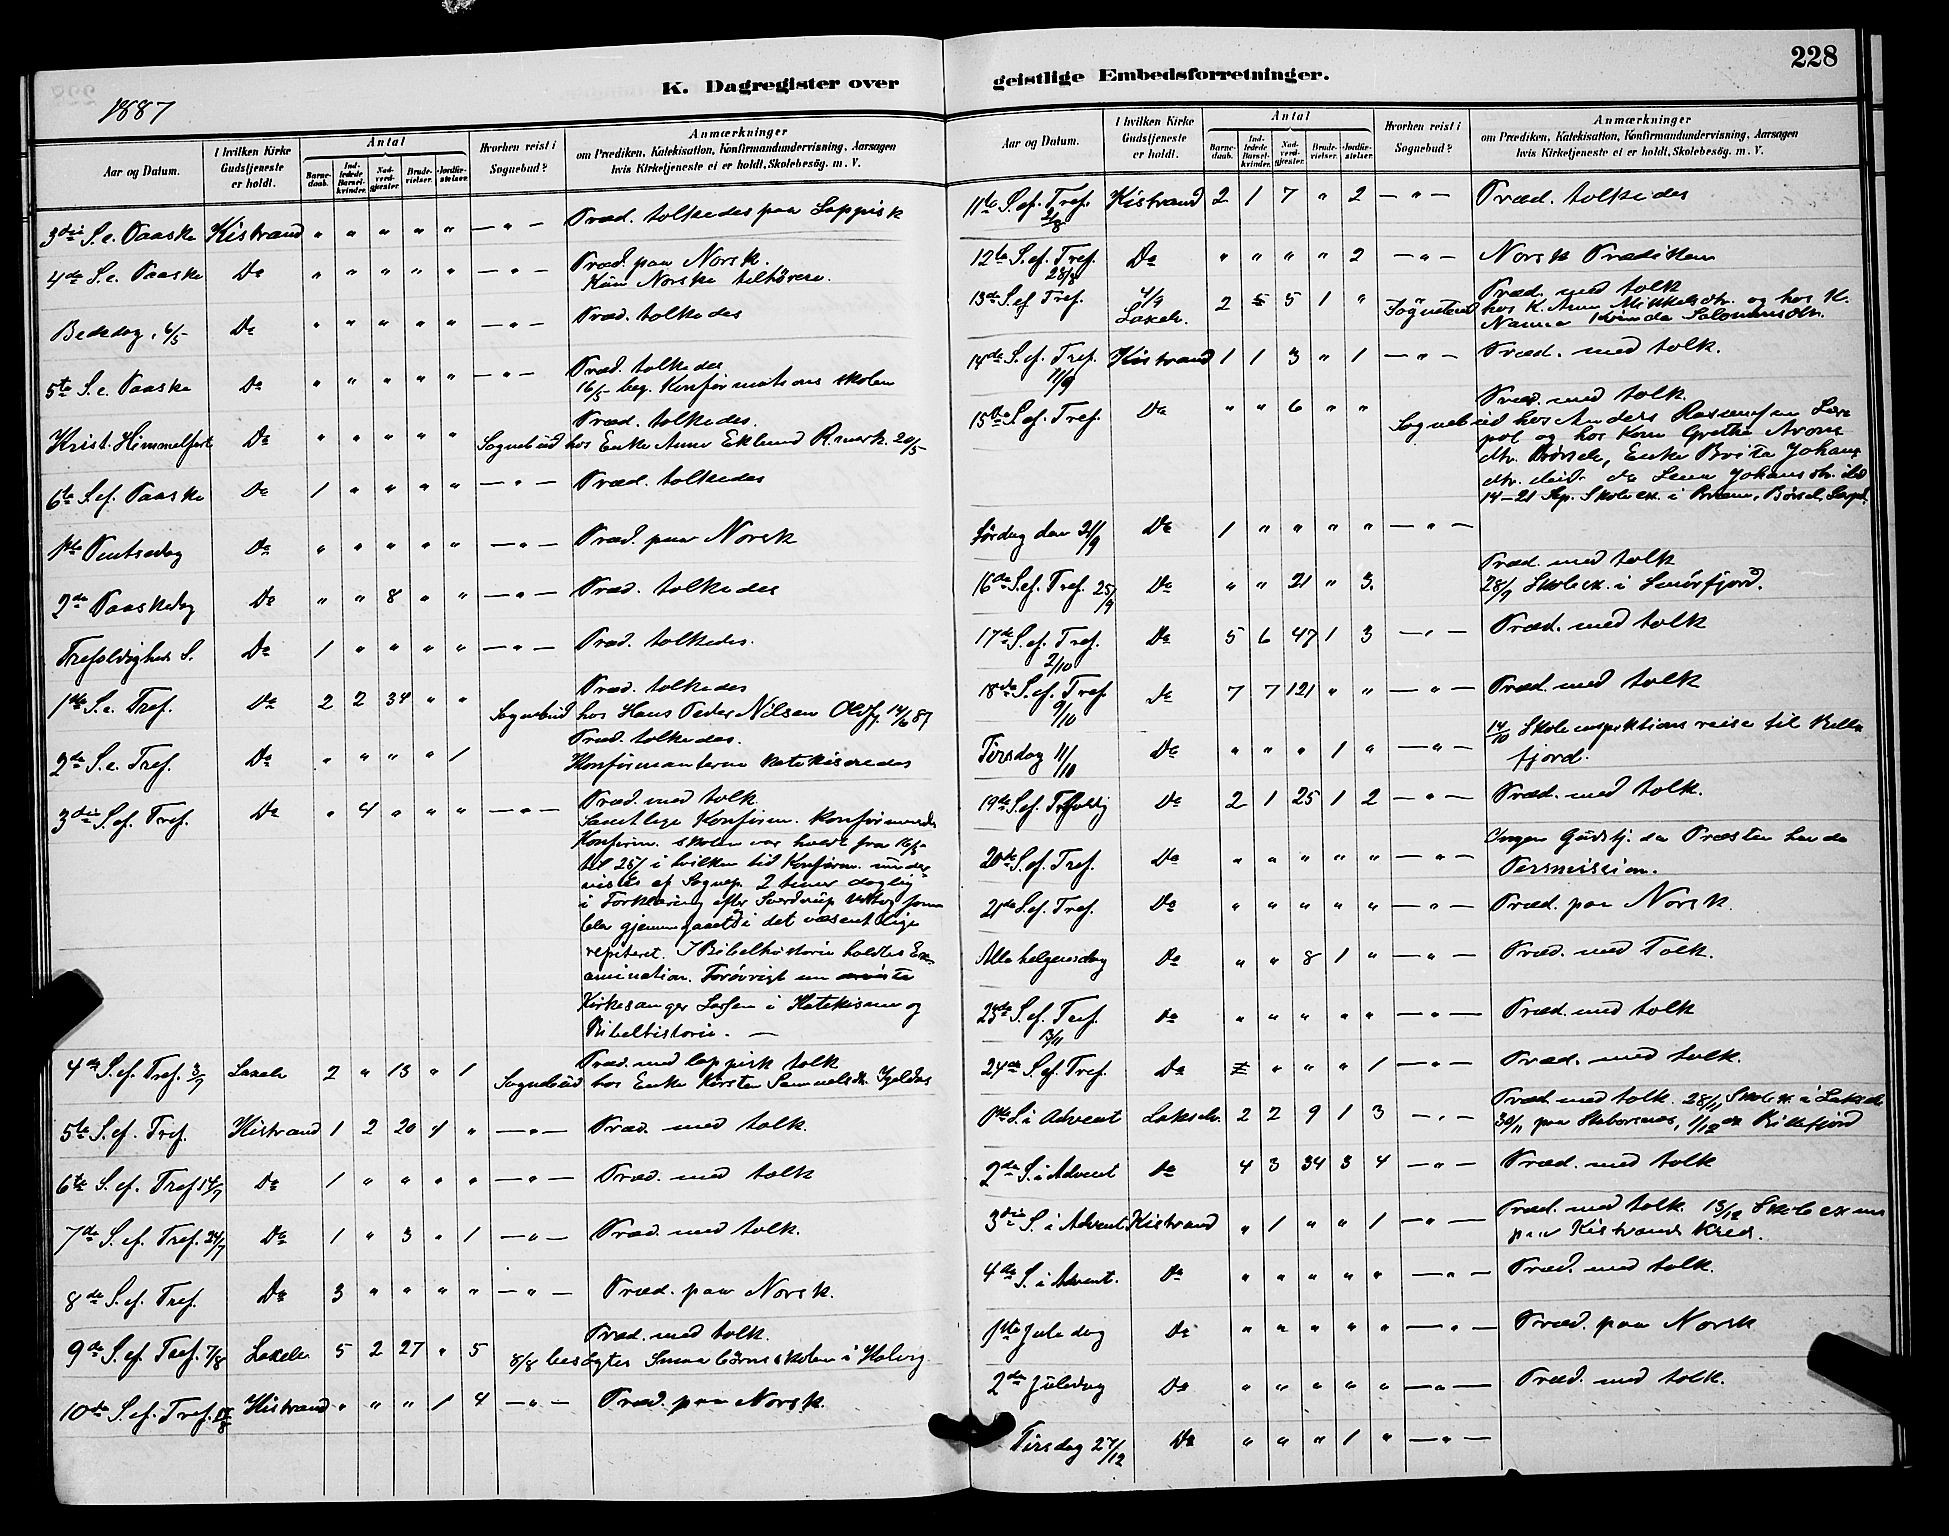 228
K. Dagregister over
geistlige Embedsforretninger.
1887
Aar og Datum.
I hvilken Kirke Gudstjeneste er holdt.
Antal
Barnedaab.
Indledede Barselkvinder.
Nadverdgjester.
Brudevielser.
Jordfæstelser.
Hvorhen reist i Sognebud?
Anmærkninger
om Prædiken, Katekisation, Konfirmandundervisning, Aarsagen
hvis Kirketjeneste ei er holdt, Skolebesög. m. V.
3die S. e. Paaske Kistrand " " " " " — " — Præd. tolkedes paa Lappisk
4de S. e. Paaske Do " " " " " — " — Præd. paa Norsk.
Kun Norske tilhörere.
Bededag, 6/5 Do " " " " " — " — Præd. tolkedes
5te S. e. Paaske Do " " " " " — " — Præd. tolkedes
16/5 beg. Konfirmations skolen
Krist. Himmelfart Do " " " " " Præd. tolkedes.
Sognebud hos Enke Anne Eklund 20/5
6te S. ef. Paaske Do 1 " " " " — " — Præd. tolkedes
1ste Pintsedag Do " " " " " — " — Præd. paa Norsk
2den Paaskedag Do " " 8 " " — " — Præd. tolkedes
Trefoldigheds S. Do 1 " " " " — " — Præd. tolkedes.
1ste S. e. Tref. Do 2 2 34 " " Præd. tolkedes
Sognebud hos Hans Peder Nilsen Oldfj. 14/6 87
2de S. e. Tref. Do " " " " 1 Præd. tolkedes.
Konfirmanterne katekiseredes
3die S. ef. Tref. Do " 4 " " " — " — Præd. med tolk
Samtlige Konfirm. konfirmeredes
Konfirm. skolen var holdt fra 16/5
til 25/ i hvilken tid Konfirm. under
vistes af Sognep. 2 timer daglig
i Forklaring efter Sverdrup Udtog som
blev gjennemgaaet i det væsentlige
repiteret. I Bibelhistorie holdtes Ex-
amination. Forövrigt
Kirkesanger Larsen i Katekisme og
Bibelhistorie. —
4de S. ef. Tref. 3/7 Laxelv 2 " 13 " 1 Præd. med lappisk tolk
Sognebud hos Enke Kirsten Samuelsdr.
5te S. ef. Tref. Kistrand 1 2 20 4 " — " — Præd. med tolk.
6te S. ef. Tref Do 1 " " " " — " — Præd. med tolk
7de S. ef. Tref. 24/7 Do 1 " 3 " 1 — " — Præd. med tolk.
8de S. ef. Tref. Do 3 " " " " — " — Præd. paa Norsk.
9de S. ef. Tref. 7/8 Laxelv 5 2 27 " 5 Præd. med tolk.
8/8 besögtes Smaabörnsskolen i
10de S. ef. Tref. Kistrand " " " 1 4 — " — Præd. paa Norsk.
Aar og Datum.
I hvilken Kirke Gudstjeneste er holdt.
Antal
Barnedaab.
Indledede Barselkvinder.
Nadverdgjester.
Brudevielser.
Jordfæstelser.
Hvorhen reist i Sognebud?
Anmærkninger
om Prædiken, Katekisation, Konfirmandundervisning, Aarsagen
hvis Kirketjeneste ei er holdt, Skolebesög. m. V.
11te S. ef. Tref. Kistrand 2 1 7 " 2 — " — Præd. tolkedes
12te S. ef. Tref. 28/8 Do " " " " 2 — " — Norsk Prædiken
13de S. ef Tref. 4/9 Laxelv. 2 5 5 1 " Præd. med tolk
Sognebud hos K. Anne Mikkelsdtr. og hos K.
14de S. ef. Tref. 11/9 Kistrand 1 1 3 " 1 — " — Præd. med tolk.
15de S. ef. Tref. Do " " 6 " " Præd. med tolk.
Sognebud hos Anders Rasmussen
og hos Kone Grethe Arons
dtr. Börselv, Enke Brita Johans
dtr. do Lena Johansdtr.
14–21 Sep. Skoleex. i Börselv,
Lördag den Do 1 " " " " — " —
16de S. ef. Tref. 25/9 Do " " 21 " 3. Præd. med tolk
28/9 Skoleex. i Smörfjord.
17de S. ef. Tref. 2/10 Do 5 6 47 1 3 — " — Præd. med tolk
18de S. ef. Tref. 9/10 Do 7 7 121 " " — " — Præd. med tolk
Tirsdag 11/10 Do " " " 1 " — " — 14/10 Skoleinspektionsreise til Bille
fjord.
19de S. ef. Trefoldig Do 2 1 25 1 2 — " — Præd. med tolk.
20de S. ef. Tref. Do " " " " " — " — Ingen Gudstj. da Præsten havde
Permission.
21de S. ef. Tref. Do " " " " " — " — Præd. paa Norsk.
Allehelgensdag Do " " 8 1 " — " — Præd. med Tolk.
23de S. ef. Tref. Do " " " " " — " — Præd. med tolk
24de S. ef. Tref. Do " " " 1 — " — Præd. med tolk.
1ste S. i Advent Lakselv. 2 2 9 1 3 — " — Præd. med tolk. 28/11 Skoleex. i Lakselv
30/11 paa 1/12 Billefjord
2de S. i Advent Do 4 3 34 3 4 — " — Præd. med tolk
3die S. i Advent Kistrand " 1 " " 1 — " — Præd. med tolk. 13/12 Skoleexam
paa Kistrand Kreds.
4de S. i Advent. Do " " " " " — " — Præd. med tolk.
1ste Juledag Do " " " " " — " — Præd. paa Norsk
2de Juledag Do " " " " " — " — Præd. med tolk.
Tirsdag 27/12 Do " " " 1 " — " —